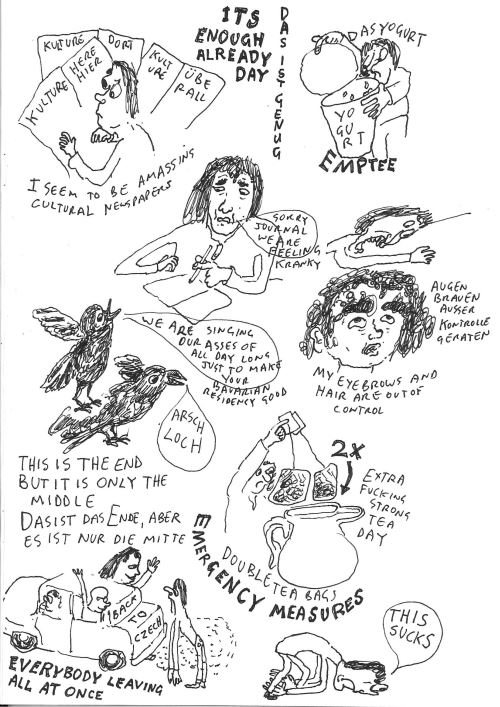 ITS
ENOUGH
ALREADY
DAY
DAS IST GENUG
DAS YOGURT
YO
GU
RT
EMPTEE
KULTURE
DORT
HERE
HIER
KULT
URE
KULTURE
ÜBE
RALL
I SEEM TO BE AMASSING
CULTURAL NEWSPAPERS
SORRY
JOURNAL
WE ARE
FEELING
KRANKY
AUGEN
BRAUEN
AUSER
KONTROLLE
GERATEN
MY EYEBROWS AND
HAIR ARE OUT OF
CONTROL
WE ARE SINGING
OUR ASSES OF
ALL DAY LONG
JUST TO MAKE
YOUR
BAVARIAN
RESIDENCY GOOD
ARSCH
LOCH
THIS IS THE END
BUT IT IS ONLY THE
MIDDLE
DAS IST DAS ENDE, ABER
ES IST NUR DIE MITTE
2X
EXTRA
FUCKING
STRONG
TEA
DAY
DOUBLE TEA BAGS
EMERGENCY MEASURES
BACK
TO
CZECH
EVERYBODY LEAVING
ALL AT ONCE
THIS
SUCKS